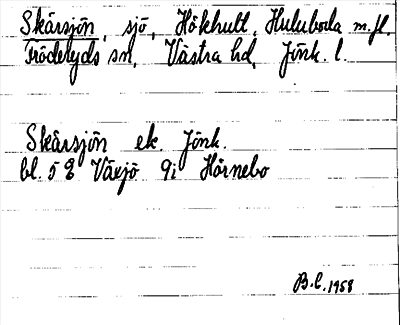 Skärsjön, sjö, Hökhult, Huluboda m.fl.
Bröderyds sn, Västra hd, Jönk. l.
Skärsjön ek. Jönk.
bl. 58 Växjö 9i Hörnebo
B.C. 1958